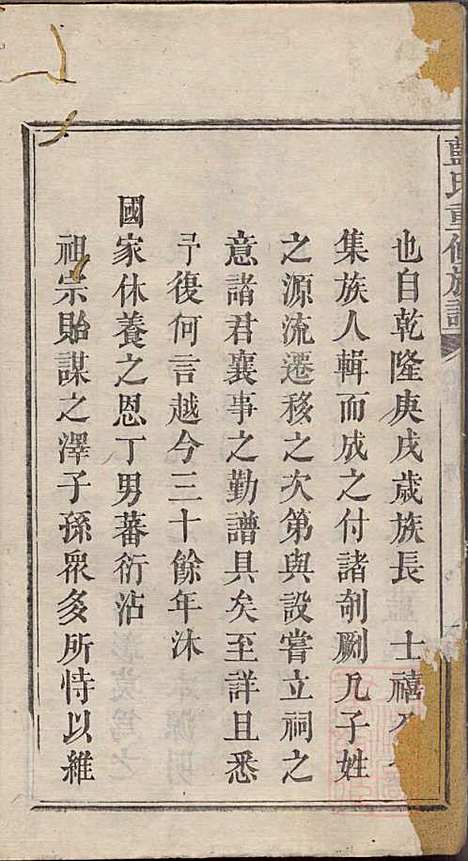 藍氏重修族譜
也自乾隆庚戌歲族長　士禧公
集族人輯而成之付諸剞劂凡子姓
之源流遷移之次第與設嘗立祠之
意諸君襄事之勤譜具矣至詳且悉
予復何言越今三十餘年沐
國家休養之恩丁男蕃衍沾
祖宗貽謀之澤子孫衆多所恃以維